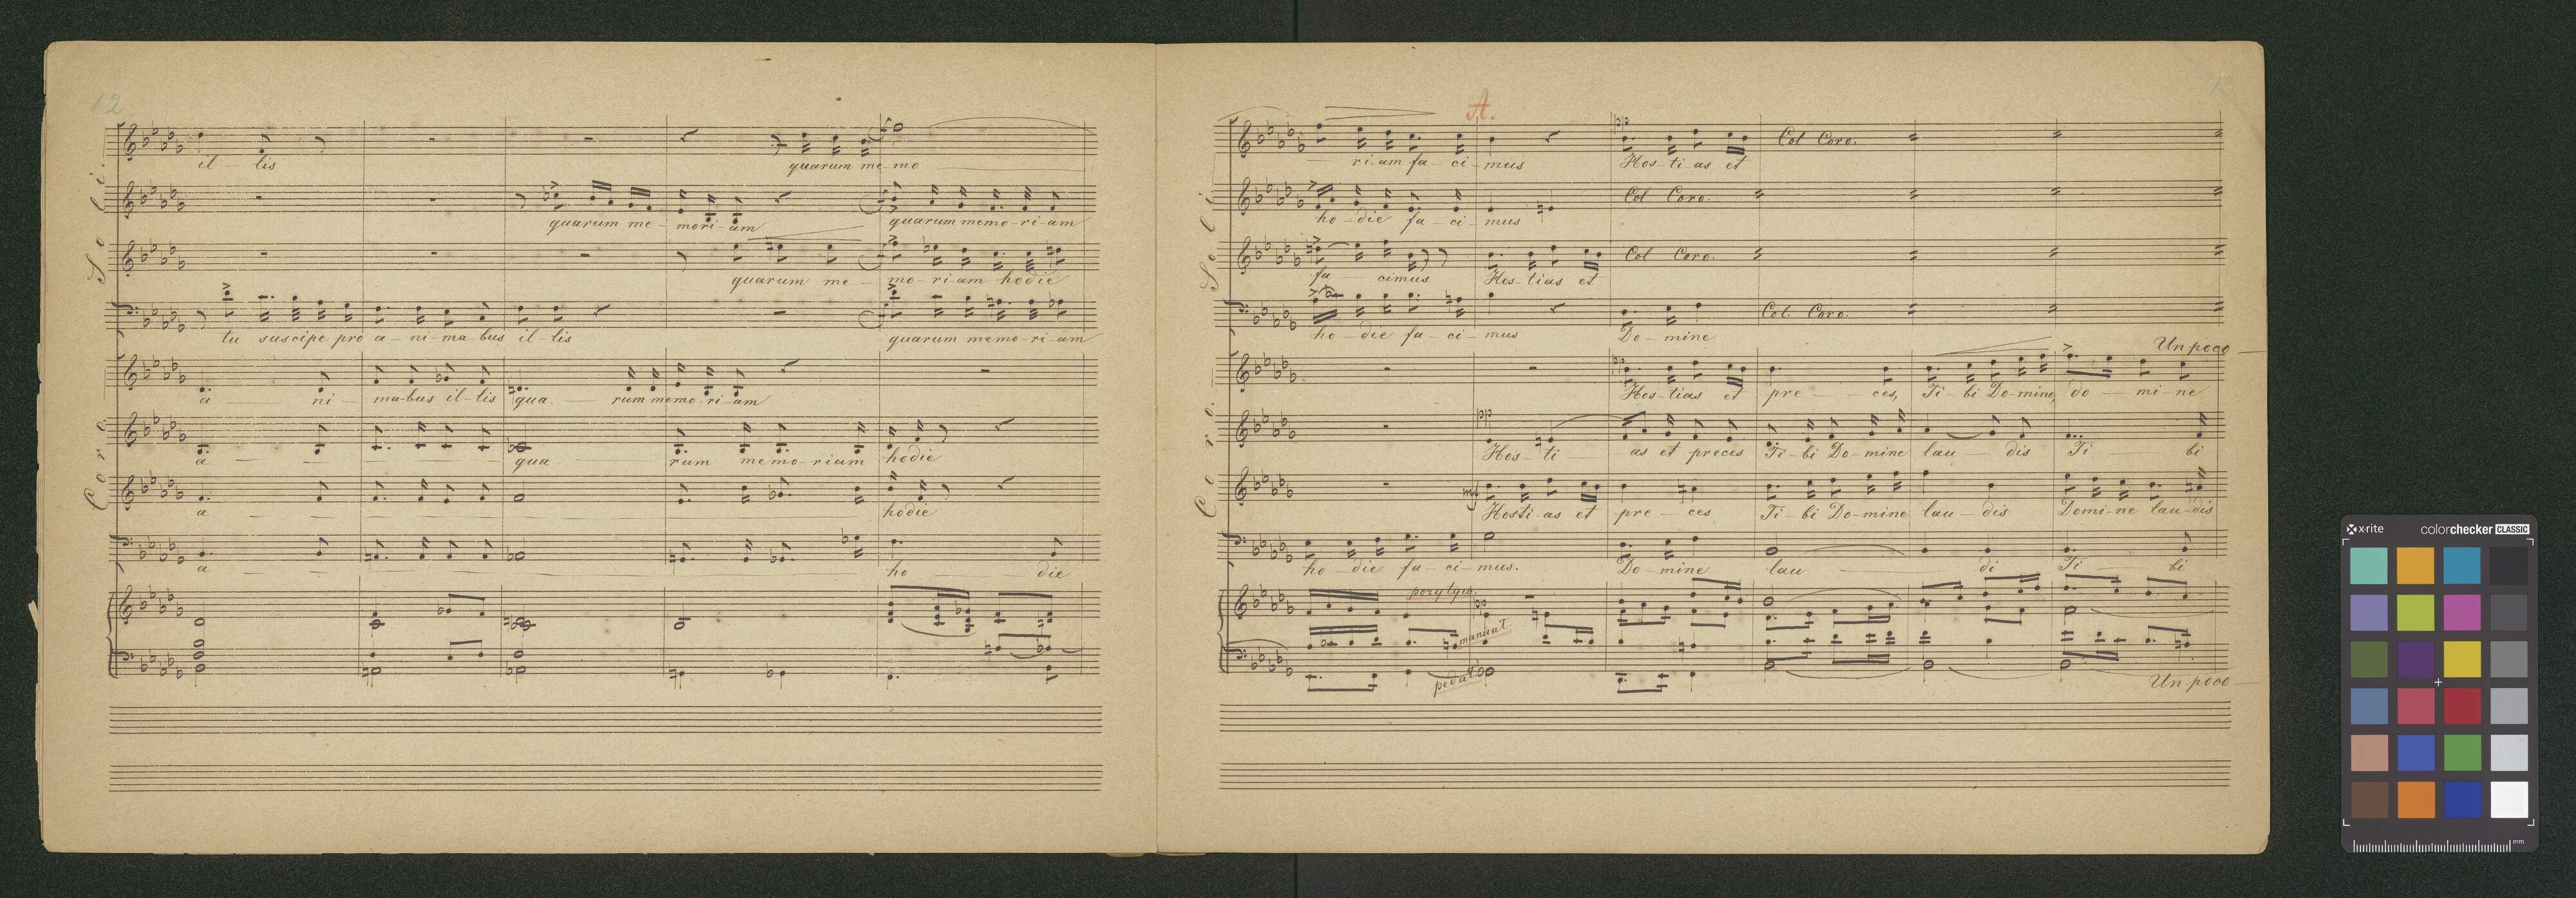 12
Soli.
il – lis quarum me – mo
quarum me – mori – am quarum memo – ri – am
quarum me – mo – ri – am hodie
tu suscipe pro a – ni – ma – bus il – lis quarum memo – ri – am
Coro.
a ni – ma – bus il – lis qua rum memo – ri – am
a qua rum memo – riam hodie
a hodie
a ho die
13
A.
Soli.
ri – am fa – ci – mus Hos – ti – as et Col Coro.
ho – die fa – ci – mus Col Coro.
fa cimus Hos – tias et Col Coro.
ho – die fa – ci – mus Do – mine Col. Coro.
Un poco
Coro.
Hos – tias et pre – ces, Ti – bi Do – mine, do – mi – ne
Hos – ti – as et preces Ti – bi Do – mine lau – dis Ti bi
mf
Hosti – as et pre – ces Ti – bi Do – mine lau – dis Domi – ne lau – dis
ho – die fa – ci – mus. Do – mine lau di Ti bi
manuat.
pedal.
Un poco
x-rite colorchecker CLASSIC
mm